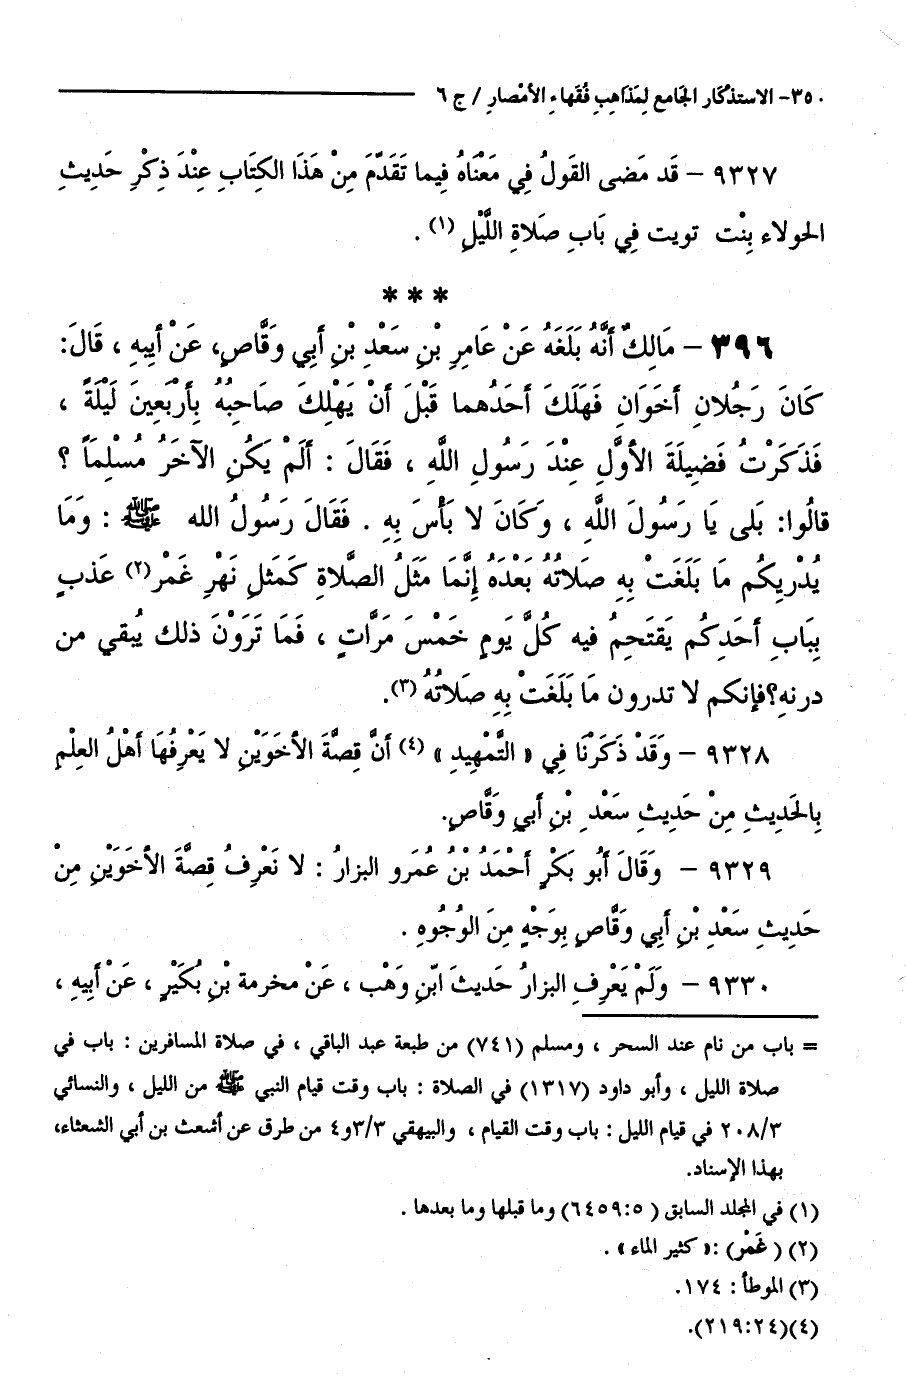 ٣٥٠- الاستذْكَار الجَامع لِمَذَاهِبِ فُقَهاءِ الأمْصارِ / ج ٦
٩٣٢٧ – قَد مَضى القَولُ فِي مَعْنَاهُ فِيما تَقَدَّمَ مِنْ هَذَا الكِتَابِ عِنْدَ ذِكْرِ حَدِيثِ
الحولاء بِنْت تويت فِي بَابِ صَلَاةِ اللَّيْلِ (١) .
* * *
٣٩٦ – مَالِكٌ أَنَّهُ بَلَغَهُ عَنْ عَامِرِ بْنِ سَعْدِ بْنِ أَبِي وَقَّاصٍ، عَنْ أَبِيهِ ، قَالَ:
كَانَ رَجُلانِ أَخَوَانِ فَهَلَكَ أَحَدُهما قَبْلَ أَنْ يَهْلِكَ صَاحِبُهُ بِأَرْبَعِينَ لَيْلَةً ،
فَذَكَرْتُ فَضِيلَةَ الأوَّلِ عِنْدَ رَسُولِ اللَّهِ ، فَقَالَ : أَلَمْ يَكُنِ الآخَرُ مُسْلِمَاً ؟
قالُوا: بَلى يَا رَسُولَ اللَّهِ ، وَكَانَ لا بَأْسَ بِهِ . فَقَالَ رَسُولُ الله ﷺ : وَمَا
يُدْرِيكُم مَا بَلَغَتْ بِهِ صَلاتُهُ بَعْدَهُ إِنَّمَا مَثَلُ الصَّلاةِ كَمَثَلِ نَهْرٍ غَمْرٍ(٢) عَذبٍ
بِبَابِ أَحَدِكُم يَقتَحِمُ فيه كُلَّ يَومٍ خَمْسَ مَرَّاتٍ ، فَمَا تَرَوْنَ ذلك يُبقي من
درنهِ؟فإنكم لا تدرون مَا بَلَغَتْ بِهِ صَلَاتُهُ (٣).
٩٣٢٨ – وَقَدْ ذَكَرْنَا فِي « التَّمْهِيدِ » (٤) أَنَّ قِصَّةَ الأخَوَيْنِ لا يَعْرِفُهَا أَهْلُ العِلْمِ
بِالحَدِيثِ مِنْ حَدِيثِ سَعْدِ بْنِ أَبي وَقَّاصٍ.
٩٣٢٩ – وَقَالَ أَبُو بَكْرٍ أَحْمَدُ بْنُ عُمَرو البزارُ : لا نَعْرِفُ قِصَّةَ الأخَوَيْنِ مِنْ
حَدِيثِ سَعْدِ بْنِ أَبِي وَقَّاصٍ بِوَجْهٍ مِنَ الوُجُوهِ .
٩٣٣٠ – وَلَمْ يَعْرِفِ البزارُ حَدِيثَ ابْنِ وَهْب ، عَنْ مخرمة بْنِ بُكَيْرٍ ، عَنْ أَبِيهِ ،
= باب من نام عند السحر ، ومسلم (٧٤١) من طبعة عبد الباقي ، في صلاة المسافرين : باب في
صلاة الليل ، وأبو داود (١٣١٧) في الصلاة : باب وقت قيام النبي ﷺ من الليل ، والنسائي
٢٠٨/٣ في قيام الليل : باب وقت القيام ، والبيهقي ٣/٣و٤ من طرق عن أشعث بن أبي الشعثاء،
بهذا الإسناد.
(١) في المجلد السابق ( ٥:٦٤٥٩) وما قبلها وما بعدها .
(٢) ( غَمْر) :« كثير الماء» .
(٣) الموطأ : ١٧٤.
(٤)(٢١٩:٢٤).